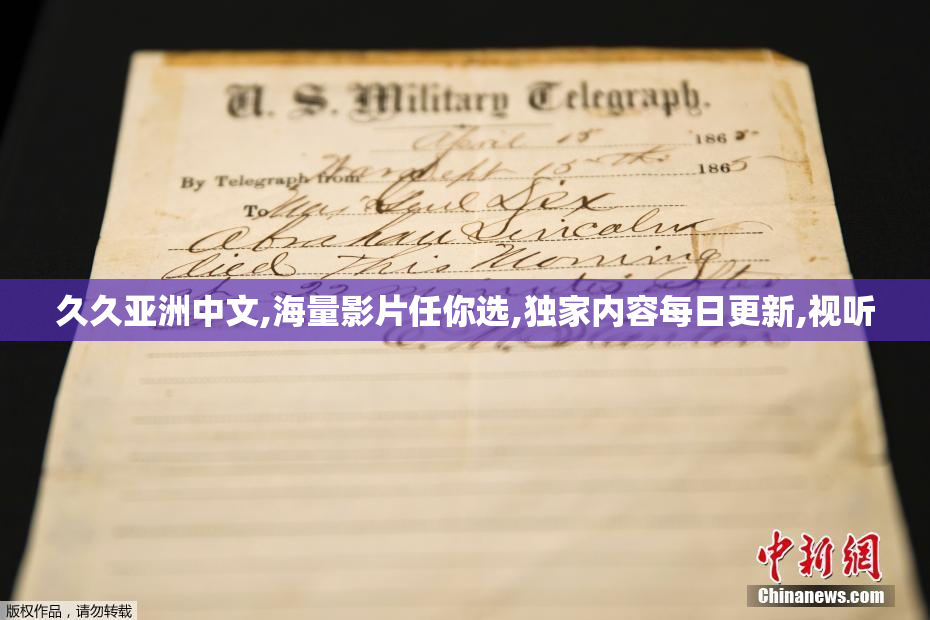 U. S. Military Telegraph.
April 15 1865
By Telegraph from War Dept 15th 1865
To Maj Genl Dix
Abraham Lincoln
died This Morning
at 22 minutes after
久久亚洲中文,海量影片任你选,独家内容每日更新,视听
E. M. Stanton
中新网
Chinanews.com
版权作品，请勿转载